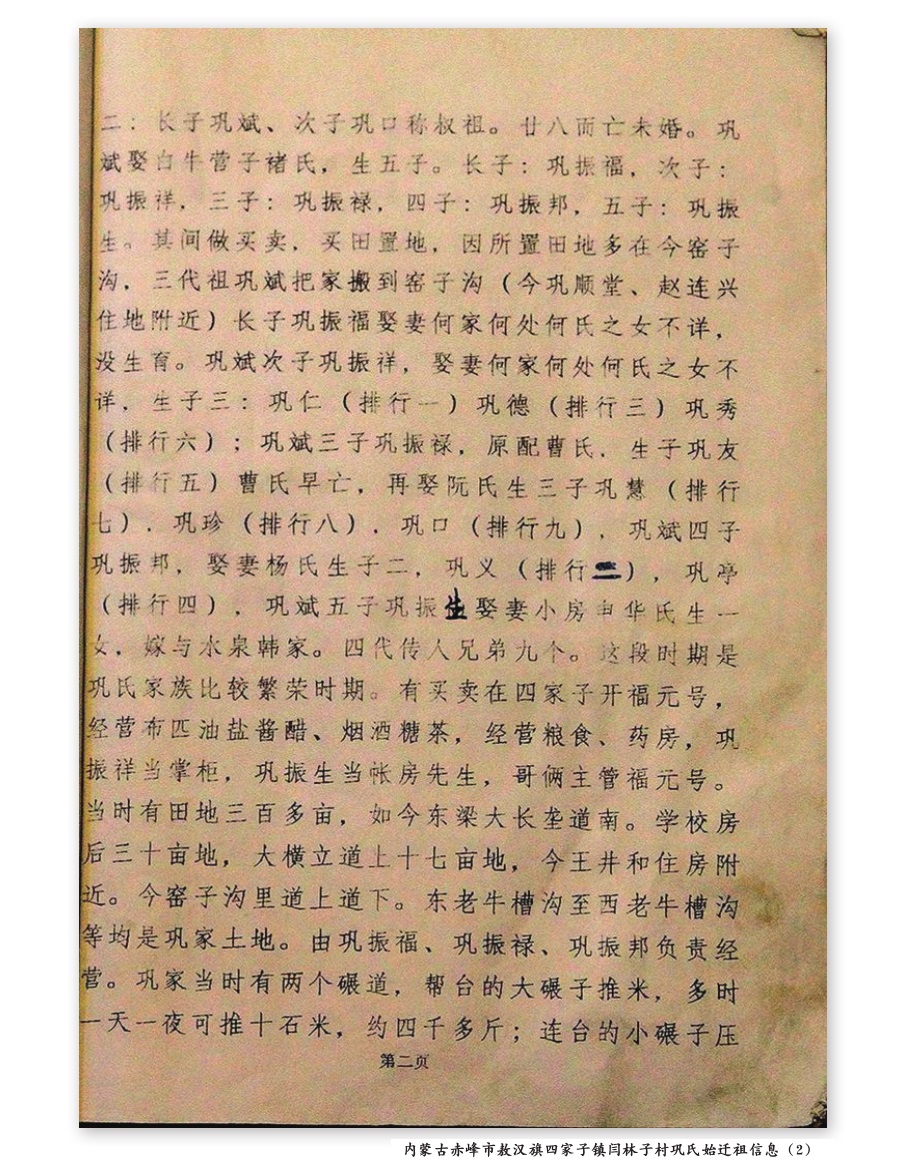 二：长子巩斌、次子巩口称叔祖。廿八而亡未婚。巩
斌娶白牛营子褚氏，生五子。长子：巩振福，次子：
巩振祥，三子：巩振禄，四子：巩振邦，五子：巩振
生。其间做买卖，买田置地，因所置田地多在今窑子
沟，三代祖巩斌把家搬到窑子沟（今巩顺堂、赵连兴
住地附近）长子巩振福娶妻何家何处何氏之女不详，
没生育。巩斌次子巩振祥，娶妻何家何处何氏之女不
详，生子三：巩仁（排行一）巩德（排行三）巩秀
（排行六）；巩斌三子巩振禄，原配曹氏，生子巩友
（排行五）曹氏早亡，再娶阮氏生三子巩慧（排行
七），巩珍（排行八），巩口（排行九），巩斌四子
巩振邦，娶妻杨氏生子二，巩义（排行二），巩亭
（排行四），巩斌五子巩振生娶妻小房申华氏生一
女，嫁与水泉韩家。四代传人兄弟九个。这段时期是
巩氏家族比较繁荣时期。有买卖在四家子开福元号，
经营布匹油盐酱醋、烟酒糖茶，经营粮食、药房，巩
振祥当掌柜，巩振生当帐房先生，哥俩主管福元号。
当时有田地三百多亩，如今东梁大长垄道南。学校房
后三十亩地，大横立道上十七亩地，今王井和住房附
近。今窑子沟里道上道下。东老牛槽沟至西老牛槽沟
等均是巩家土地。由巩振福、巩振禄、巩振邦负责经
营。巩家当时有两个碾道，帮台的大碾子推米，多时
一天一夜可推十石米，约四千多斤；连台的小碾子压
第二页
内蒙古赤峰市敖汉旗四家子镇闫林子村巩氏始迁祖信息（2）